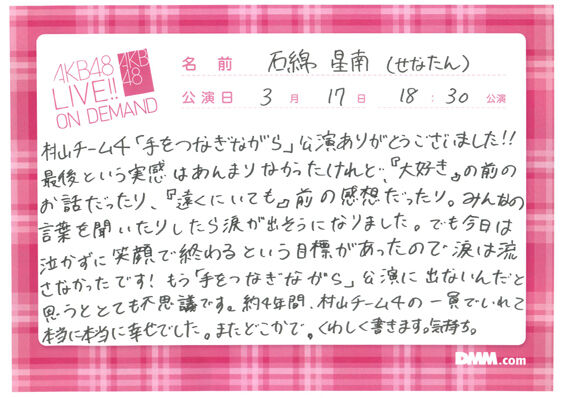 AKB48
LIVE!!
ON DEMAND
AKB
48
名前 石綿 星南 (せなたん)
公演日 3月17日 18:30公演
村山チーム4「手をつなぎながら」公演ありがとうございました!!
最後という実感はあんまりなかったけれど、『大好き』の前の
お話だったり、『遠くにいても』前の感想だったり。みんなの
言葉を聞いたりしたら涙が出そうになりました。でも今日は
泣かずに笑顔で終わるという目標があったので涙は流
さなかったです! もう「手をつなぎながら」公演に出ないんだと
思うととても不思議です。約4年間、村山チーム4の一員でいれて
本当に本当に幸せでした。またどこかで。くわしく書きます。気持ち。
DMM.com